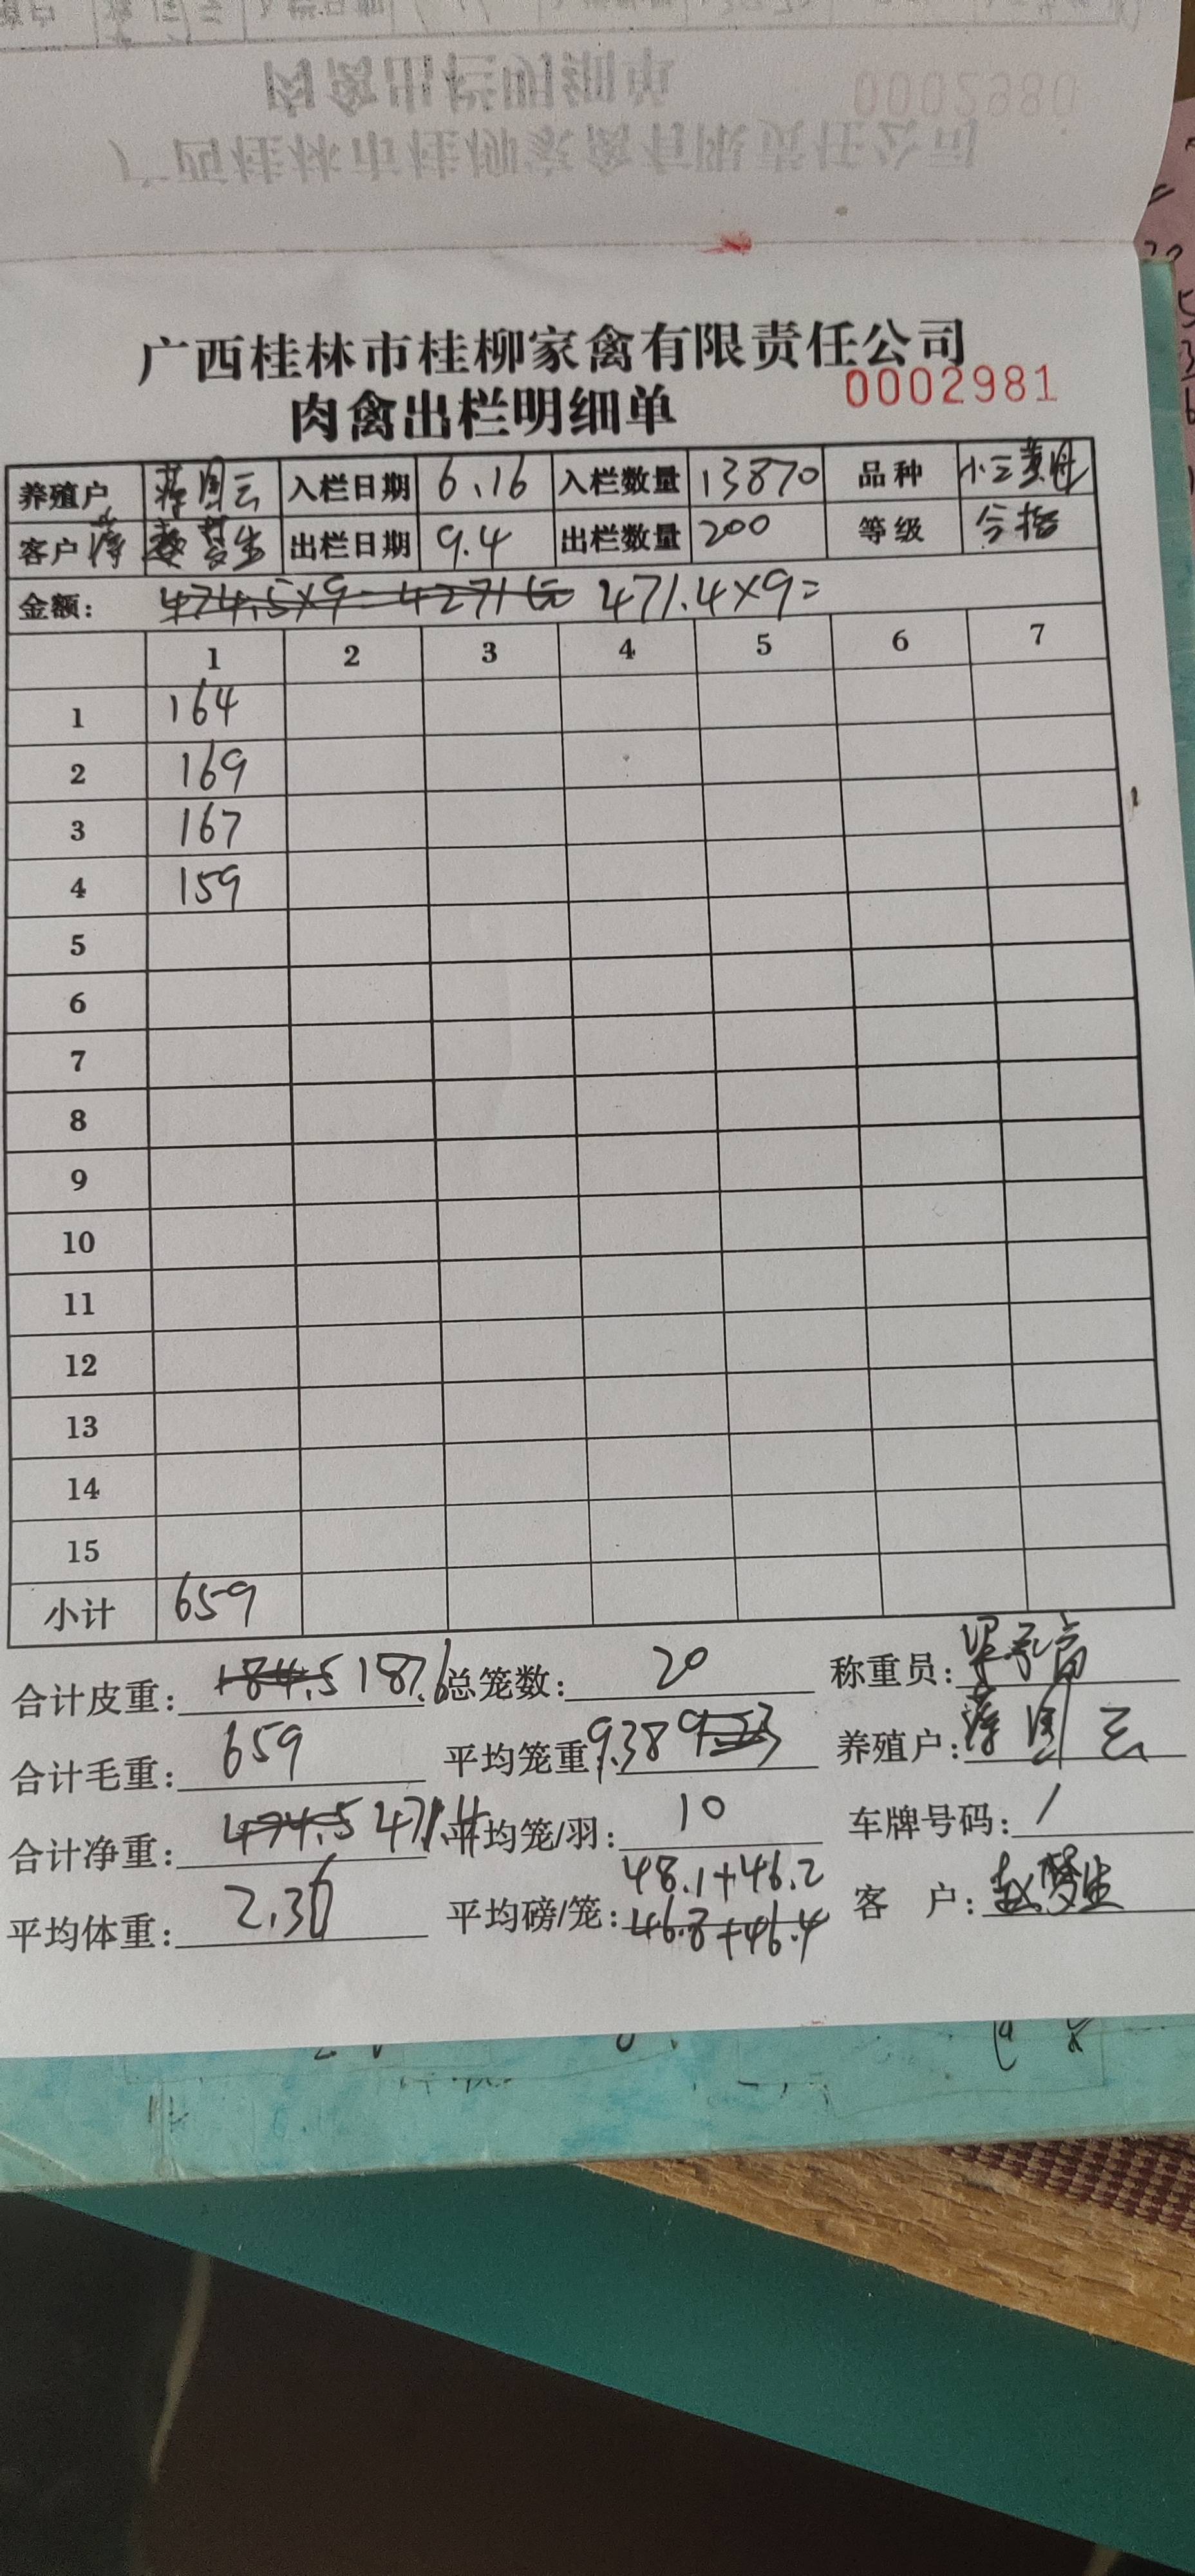 广西桂林市桂柳家禽有限责任公司
肉禽出栏明细单 0002981
养殖户 蒋国云 入栏日期 6.16 入栏数量 13870 品种 小三黄
客户 出栏日期 9.4 出栏数量 200 等级 合格
金额: 474.5×9=4271元 471.4×9=
1 2 3 4 5 6 7
1 164
2 169
3 167
4 159
5
6
7
8
9
10
11
12
13
14
15
小计 659
合计皮重: 184.5 187.6 总笼数: 20 称重员:
合计毛重: 659 平均笼重 9.38 养殖户: 蒋国云
合计净重: 474.5 471.4 平均笼/羽: 10 车牌号码: /
48.1+46.2
平均体重: 2.36 平均磅/笼: 46.8+46.4 客 户: 赵梦生